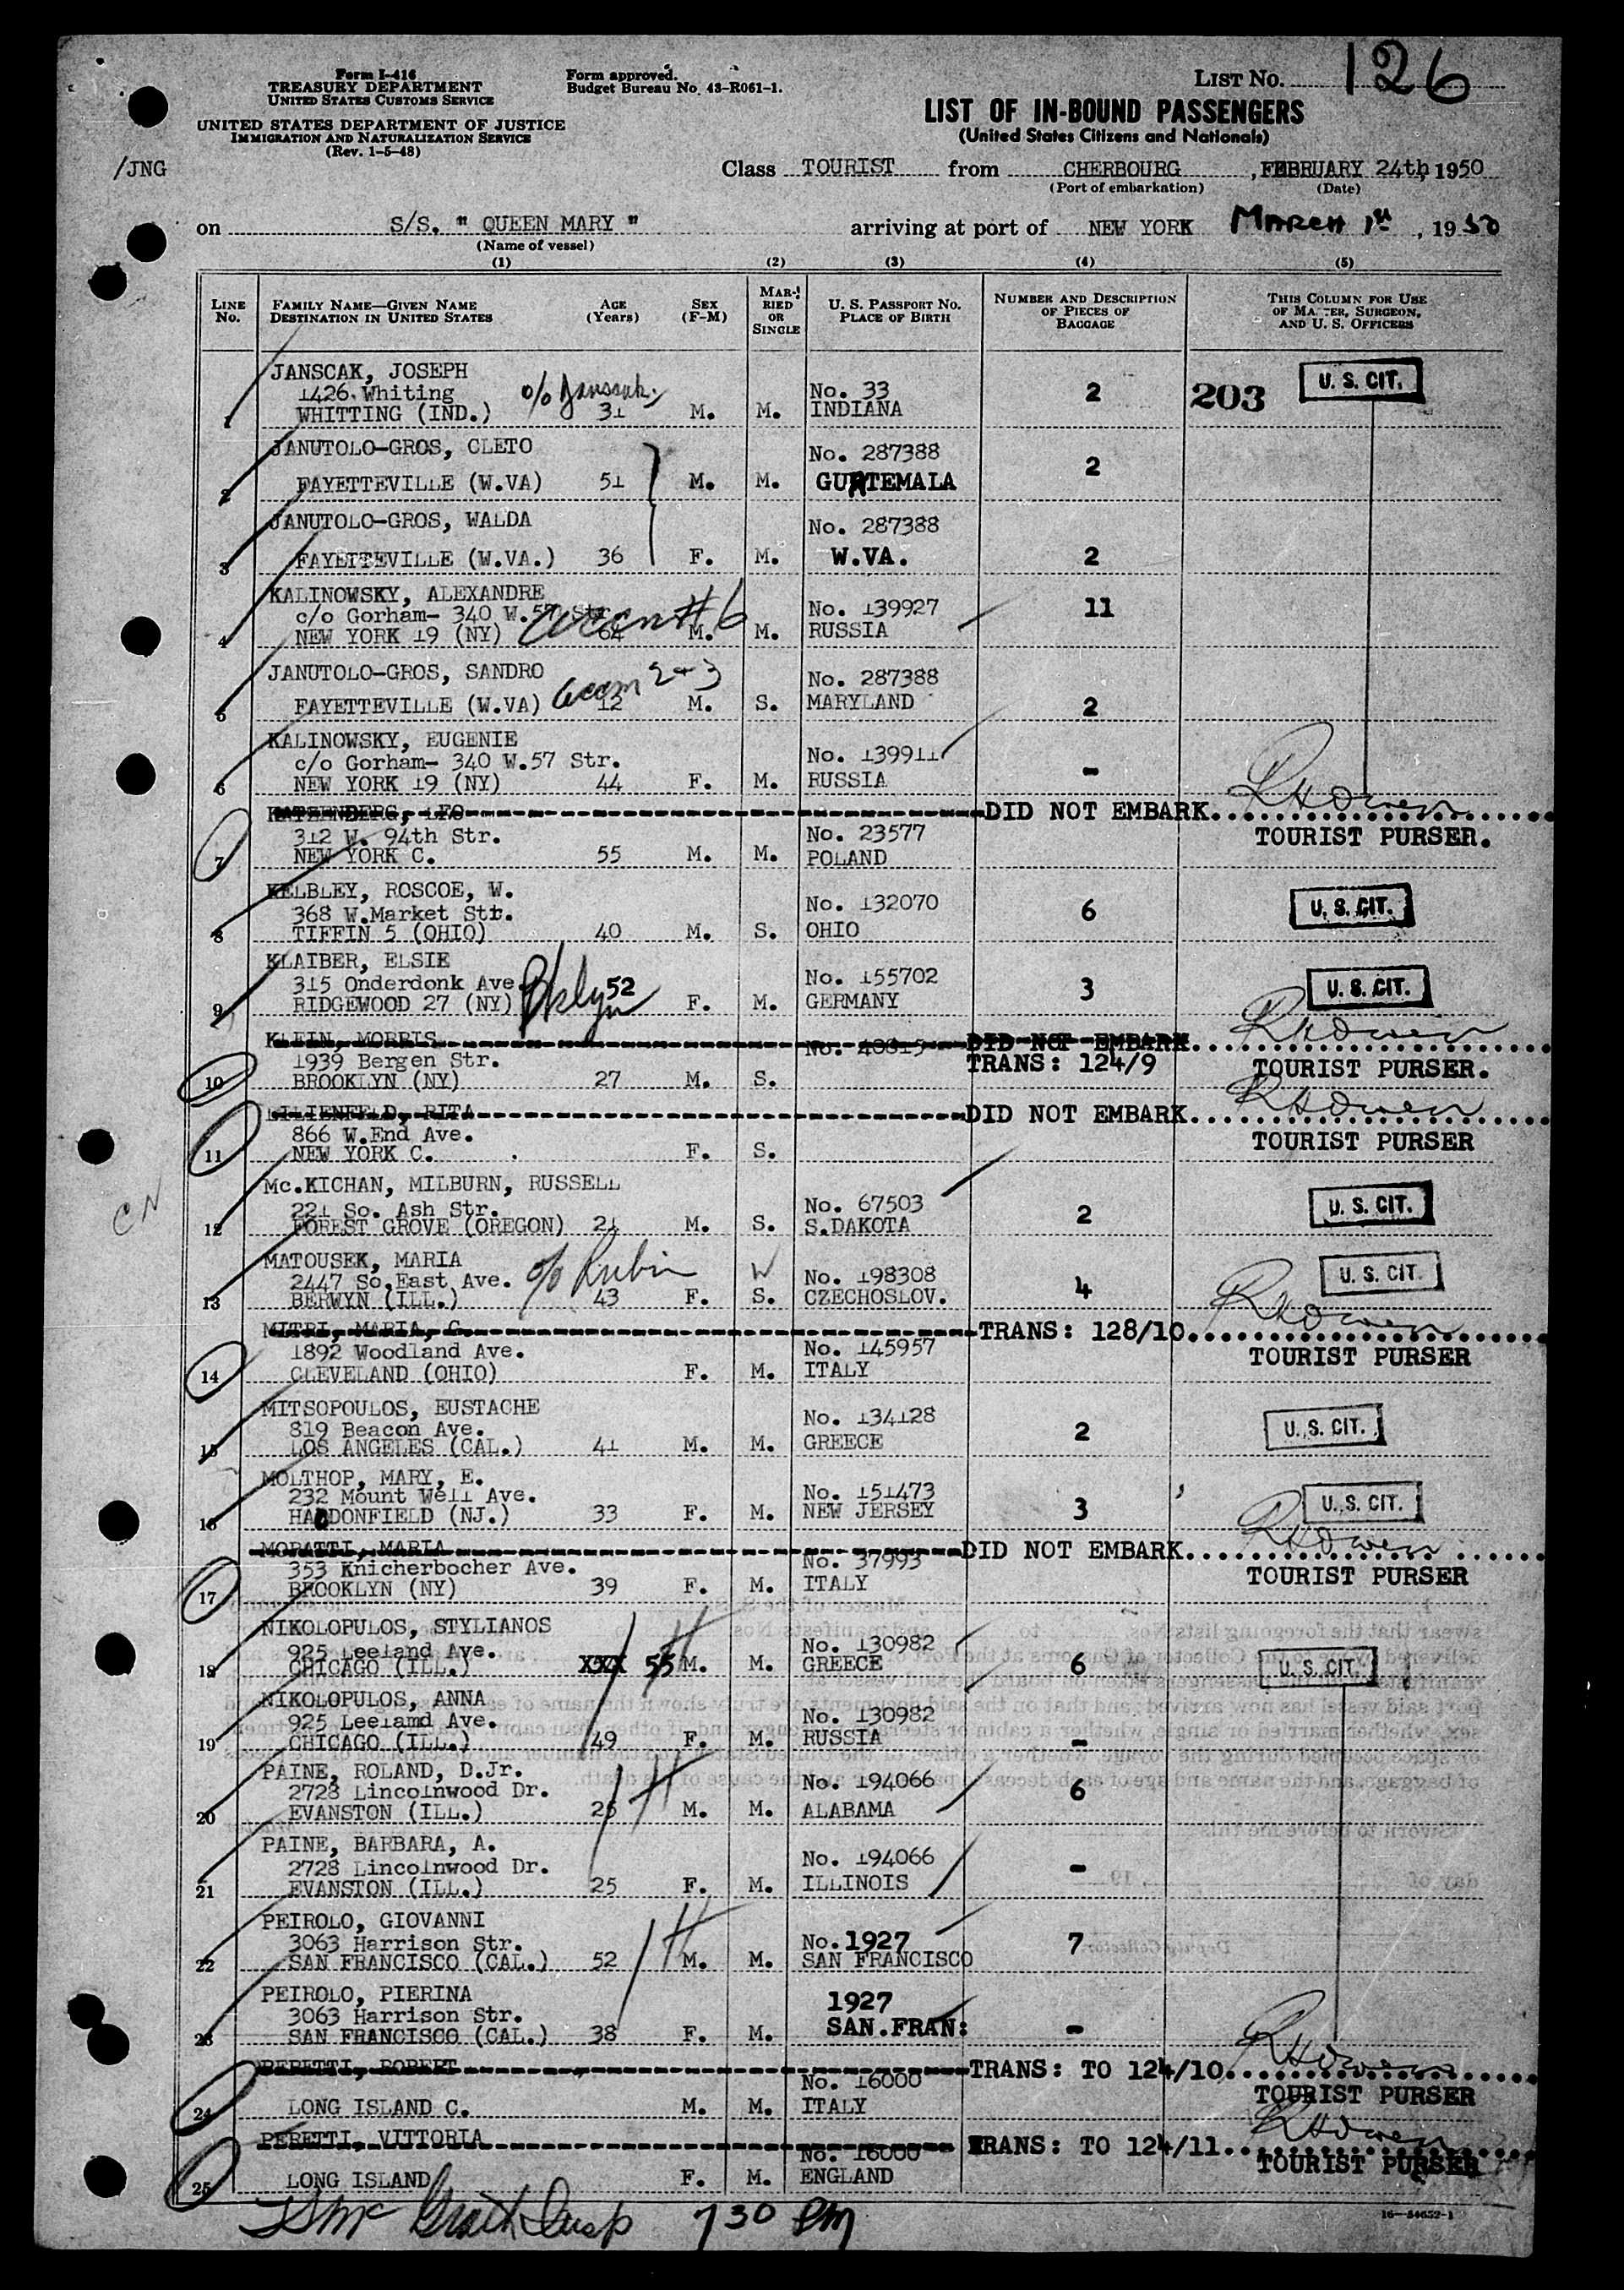 Form I-416
TREASURY DEPARTMENT
UNITED STATES CUSTOMS SERVICE
UNITED STATES DEPARTMENT OF JUSTICE
IMMIGRATION AND NATURALIZATION SERVICE
(Rev. 1-5-48)
Form approved.
Budget Bureau No. 43-R061-1.
LIST NO. 126
LIST OF IN-BOUND PASSENGERS
(United States Citizens and Nationals)
/JNG
Class TOURIST from CHERBOURG, FEBRUARY 24th, 1950
(Port of embarkation) (Date)
on S/S. " QUEEN MARY " arriving at port of NEW YORK MARCH 1st, 1950
(Name of vessel)
(1) (2) (3) (4) (5)
LINE NO. FAMILY NAME—GIVEN NAME DESTINATION IN UNITED STATES AGE (Years) SEX (F-M) MARRIED OR SINGLE U. S. PASSPORT NO. PLACE OF BIRTH NUMBER AND DESCRIPTION OF PIECES OF BAGGAGE THIS COLUMN FOR USE OF MASTER, SURGEON, AND U. S. OFFICERS
JANSCAK, JOSEPH
1426 Whiting o/o Janscak No. 33 2 203 U. S. CIT.
1 WHITTING (IND.) 31 M. M. INDIANA
JANUTOLO-GROS, CLETO No. 287388
2 FAYETTEVILLE (W.VA) 51 M. M. GUATEMALA 2
JANUTOLO-GROS, WALDA No. 287388
3 FAYETTEVILLE (W.VA.) 36 F. M. W.VA. 2
KALINOWSKY, ALEXANDRE
c/o Gorham- 340 W.57 Str. accm #6 No. 139927 11
4 NEW YORK 19 (NY) 64 M. M. RUSSIA
JANUTOLO-GROS, SANDRO accm 2+3 No. 287388
5 FAYETTEVILLE (W.VA) 12 M. S. MARYLAND 2
KALINOWSKY, EUGENIE
c/o Gorham- 340 W.57 Str. No. 139911
6 NEW YORK 19 (NY) 44 F. M. RUSSIA -
KATZENBERG, LEO DID NOT EMBARK. RHOwen
312 W. 94th Str. No. 23577 TOURIST PURSER.
7 NEW YORK C. 55 M. M. POLAND
KELBLEY, ROSCOE, W.
368 W.Market Str. No. 132070 6 U. S. CIT.
8 TIFFIN 5 (OHIO) 40 M. S. OHIO
KLAIBER, ELSIE
315 Onderdonk Ave. Bklyn 52 No. 155702 3 U. S. CIT.
9 RIDGEWOOD 27 (NY) F. M. GERMANY
KLEIN, MORRIS No. 40815 DID NOT EMBARK. RHOwen
1939 Bergen Str. TRANS: 124/9 TOURIST PURSER.
10 BROOKLYN (NY) 27 M. S.
LILIENFELD, RITA DID NOT EMBARK. RHOwen
866 W.End Ave. TOURIST PURSER
11 NEW YORK C. F. S.
Mc.KICHAN, MILBURN, RUSSELL
221 So. Ash Str. No. 67503 2 U. S. CIT.
CN
12 FOREST GROVE (OREGON) 21 M. S. S.DAKOTA
MATOUSEK, MARIA
2447 So.East Ave. o/o Rubin W No. 198308 4 U. S. CIT.
13 BERWYN (ILL.) 43 F. S. CZECHOSLOV.
MITRI, MARIA, C. TRANS: 128/10. RHOwen
1892 Woodland Ave. No. 145957 TOURIST PURSER
14 CLEVELAND (OHIO) F. M. ITALY
MITSOPOULOS, EUSTACHE
819 Beacon Ave. No. 134128 2 U. S. CIT.
15 LOS ANGELES (CAL.) 41 M. M. GREECE
MOLTHOP, MARY, E.
232 Mount Well Ave. No. 151473 3 U. S. CIT.
16 HADDONFIELD (NJ.) 33 F. M. NEW JERSEY
MORATTI, MARIA DID NOT EMBARK. RHOwen
353 Knicherbocher Ave. No. 37993 TOURIST PURSER
17 BROOKLYN (NY) 39 F. M. ITALY
NIKOLOPULOS, STYLIANOS
925 Leeland Ave. No. 130982
18 CHICAGO (ILL.) XXX 55 M. M. GREECE 6 U. S. CIT.
NIKOLOPULOS, ANNA
925 Leelamd Ave. No. 130982
19 CHICAGO (ILL.) 49 F. M. RUSSIA -
PAINE, ROLAND, D.Jr.
2728 Lincolnwood Dr. No. 194066 6
20 EVANSTON (ILL.) 25 M. M. ALABAMA
PAINE, BARBARA, A.
2728 Lincolnwood Dr. No. 194066
21 EVANSTON (ILL.) 25 F. M. ILLINOIS -
PEIROLO, GIOVANNI
3063 Harrison Str. No. 1927 7
22 SAN FRANCISCO (CAL.) 52 M. M. SAN FRANCISCO
PEIROLO, PIERINA 1927
3063 Harrison Str. SAN.FRAN:
23 SAN FRANCISCO (CAL.) 38 F. M. -
PERETTI, ROBERT TRANS: TO 124/10. RHOwen
No. 16000 TOURIST PURSER
24 LONG ISLAND C. M. M. ITALY
PERETTI, VITTORIA TRANS: TO 124/11. RHOwen
No. 16000 TOURIST PURSER
25 LONG ISLAND F. M. ENGLAND
Insp 730 PM
16—54652-1